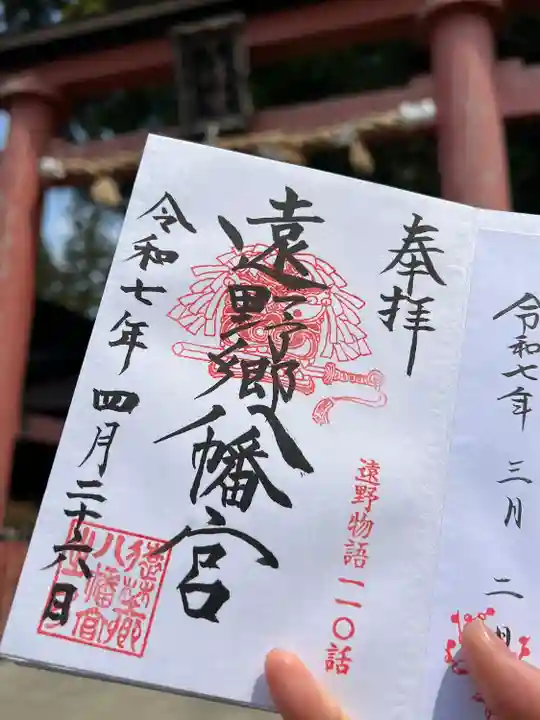 令和七年
三月二日
奉拝
遠野物語一一〇話
遠野郷八幡宮
令和七年四月二十六日